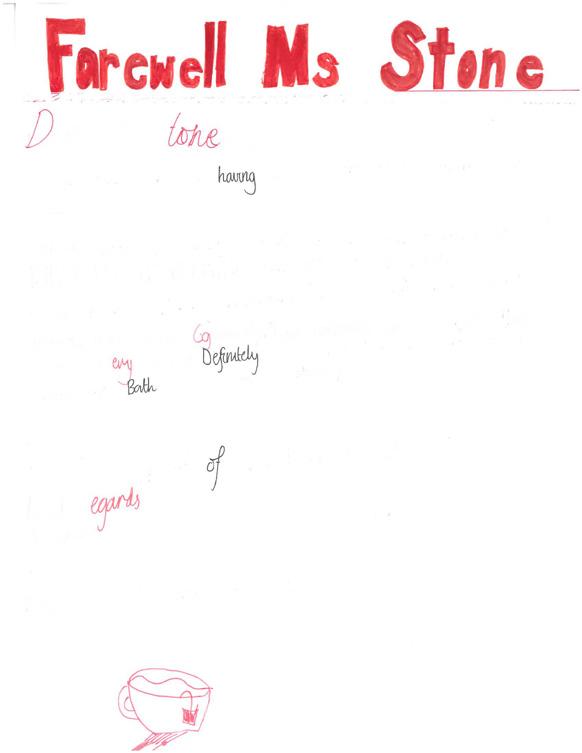 Farewell Ms Stone
D tone
having
Definitely
Bath
of
egards